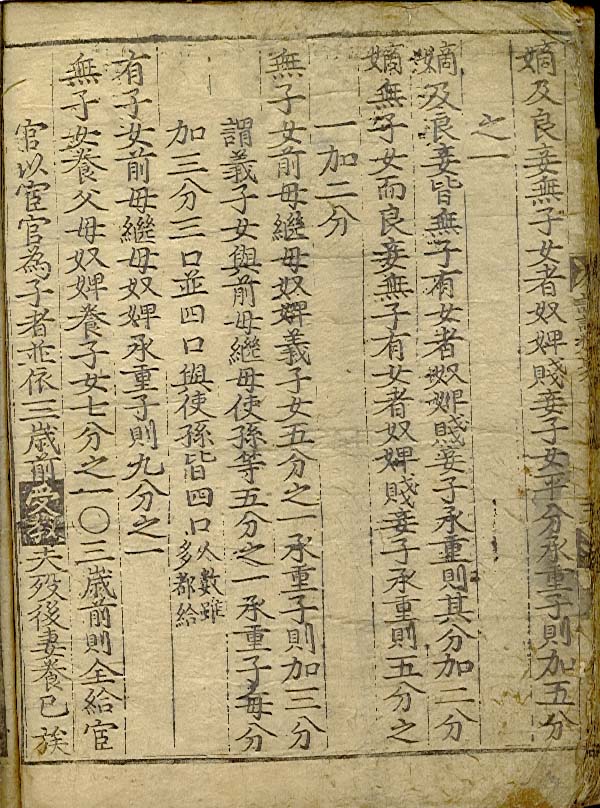 嫡及良妾無子女者奴婢賤妾子女平分承重子則加五分
之一
嫡及良妾皆無子有女者奴婢賤妾子承重則其分加二分
嫡無子女而良妾無子有女者奴婢賤妾子承重則五分之
一加二分
無子女前母繼母奴婢義子女五分之一承重子則加三分
謂義子女與前母繼母使孫等五分之一承重子每分
加三分三口並四口與使孫皆四口人數雖
多都給
有子女前母繼母奴婢承重子則九分之一
無子女養父母奴婢養子女七分之一〇三歲前則全給宦
官以宦官為子者並依三歲前受教夫歿後妻養已族